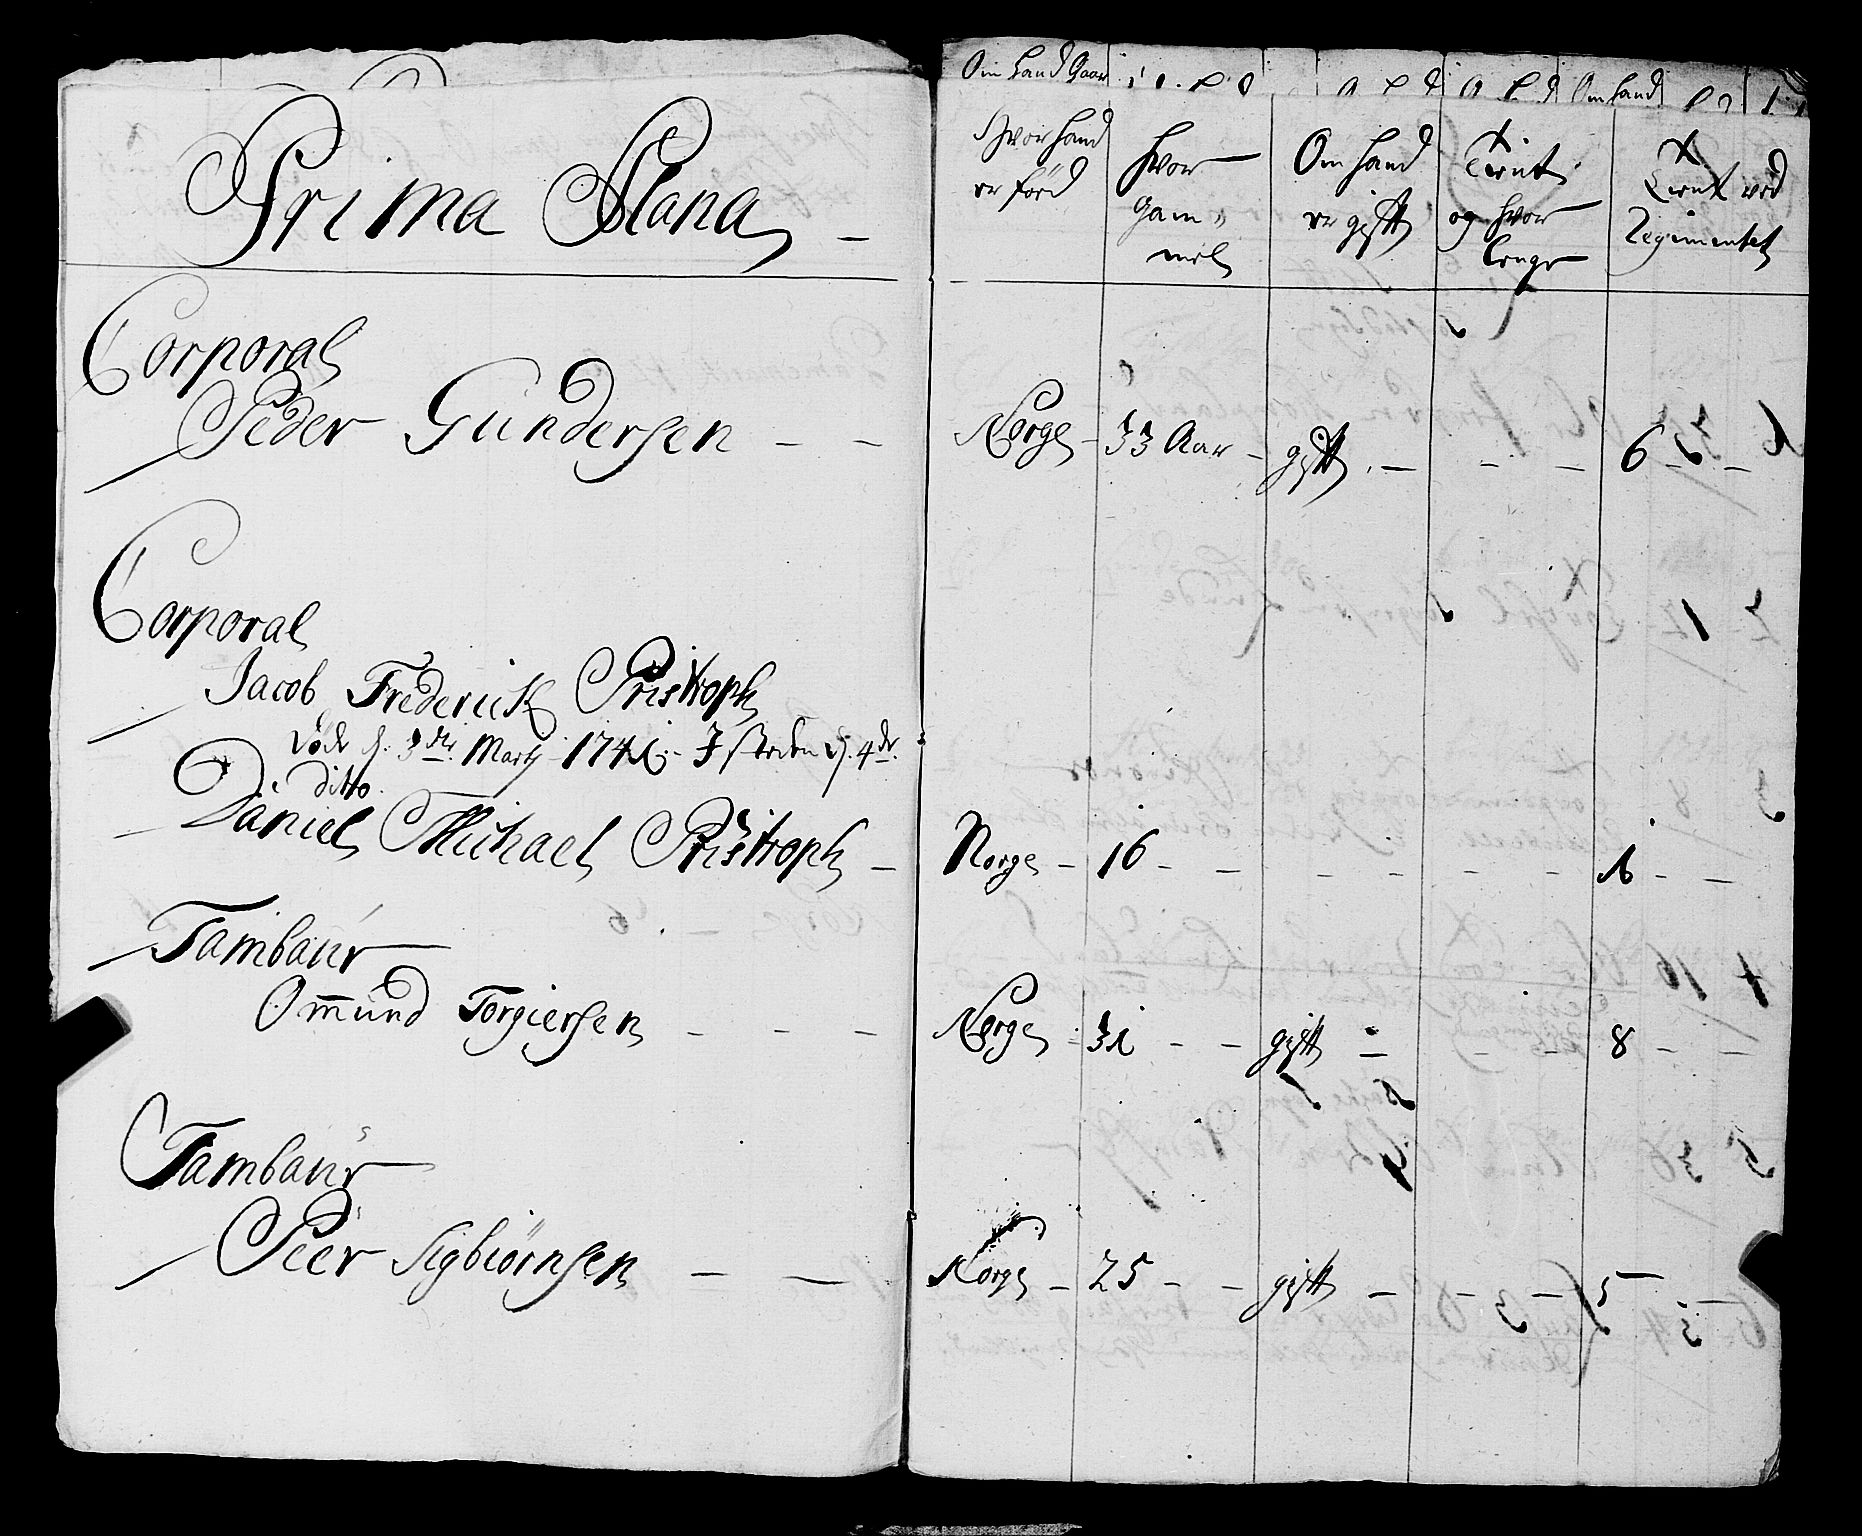 Om hand Gaar
Om hand
Prima Plana
Hvor hand er föd
Hvor Gam„ mel
Om hand er gift
Tient og hvor lenge
Tient ved Regimentet
Corporal
Peder Gundersen - - Norge - 33 Aar - gift - - - 6 - -
Corporal
Jacob Frederick Pristroph
döde d. 3die Martj 1741 - J steden d. 4de
ditto
Daniel Michael Pristroph - Norge - 16 - - - - - - 1 - -
Tambaur
Ommund Torgiersen - - - Norge - 31 - - gift - - - 8 - -
Tambaur
Peer Sigbiörnsen - - Norge - 25 - - gift - - - 5 -